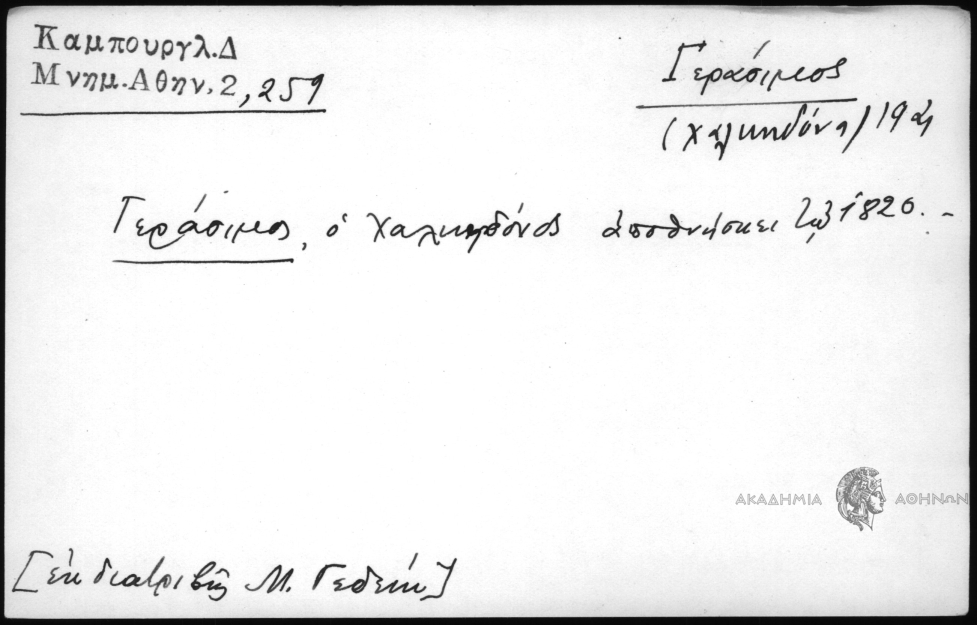 Καμπουργλ.Δ
Μνημ.Αθην.2,259
Γεράσιμος
(Χαλκηδόνα) 19
Γεράσιμος, ὁ Χαλκηδόνος ἀποθνήσκει τῷ 1820.-
ΑΚΑΔΗΜΙΑ ΑΘΗΝΩΝ
[ἐκ διατριβῆς Μ. Γεδεών]